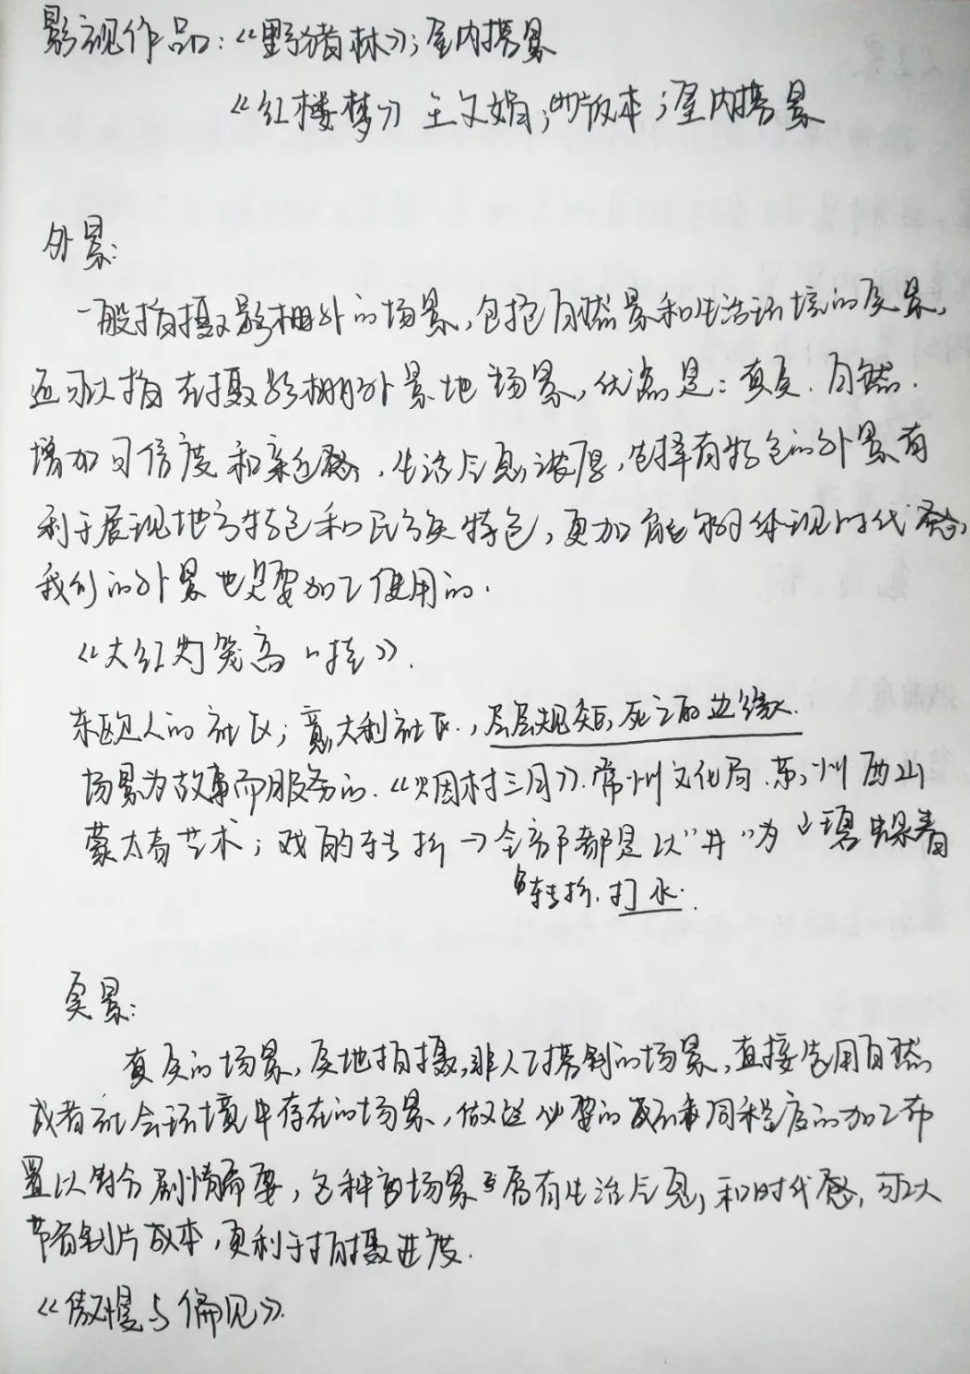 影视作品：《野猪林》；屋内搭景
《红楼梦》王文娟；的版本；屋内搭景
外景：
一般指摄影棚外的场景，包括自然景和生活环境的实景，
还可以指在摄影棚外景地场景，优点是：真实．自然．
增加可信度和亲近感，生活气息浓厚，选择有特色的外景有
利于展现地方特色和民族特色，更加能够体现时代感，
我们的外景也是要加工使用的．
《大红灯笼高高挂》．
东欧人的社区；意大利社区．，层层规矩，死亡的边缘．
场景为故事而服务的．《烟村三月》．常州文化局．苏州西山
蒙太奇艺术；戏的转折→全部都是以"井"为 碧螺春
转折．打水．
实景：
真实的场景，实地拍摄，非人工搭制的场景，直接选用自然
或者社会环境中存在的场景，做些必要的或不同程度的加工布
置以符合剧情需要，这种场景富有生活气息，和时代感，可以
节省制片成本，更利于拍摄进度．
《傲慢与偏见》．